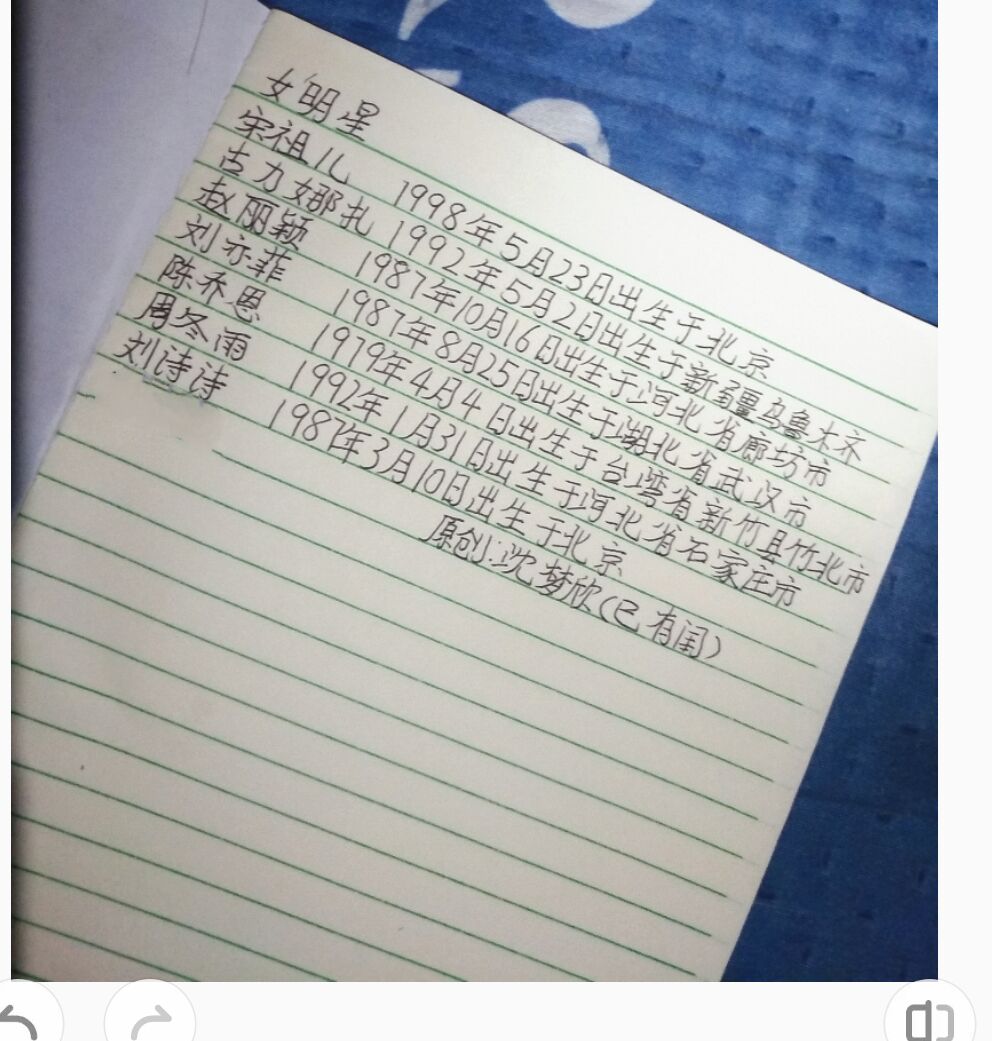 女明星
宋祖儿 1998年5月23日出生于北京
古力娜扎 1992年5月2日出生于新疆乌鲁木齐
赵丽颖 1987年10月16日出生于河北省廊坊市
刘亦菲 1987年8月25日出生于湖北省武汉市
陈乔恩 1979年4月4日出生于台湾省新竹县竹北市
周冬雨 1992年1月31日出生于河北省石家庄市
刘诗诗 1987年3月10日出生于北京
原创:沈梦欣(已有闺)